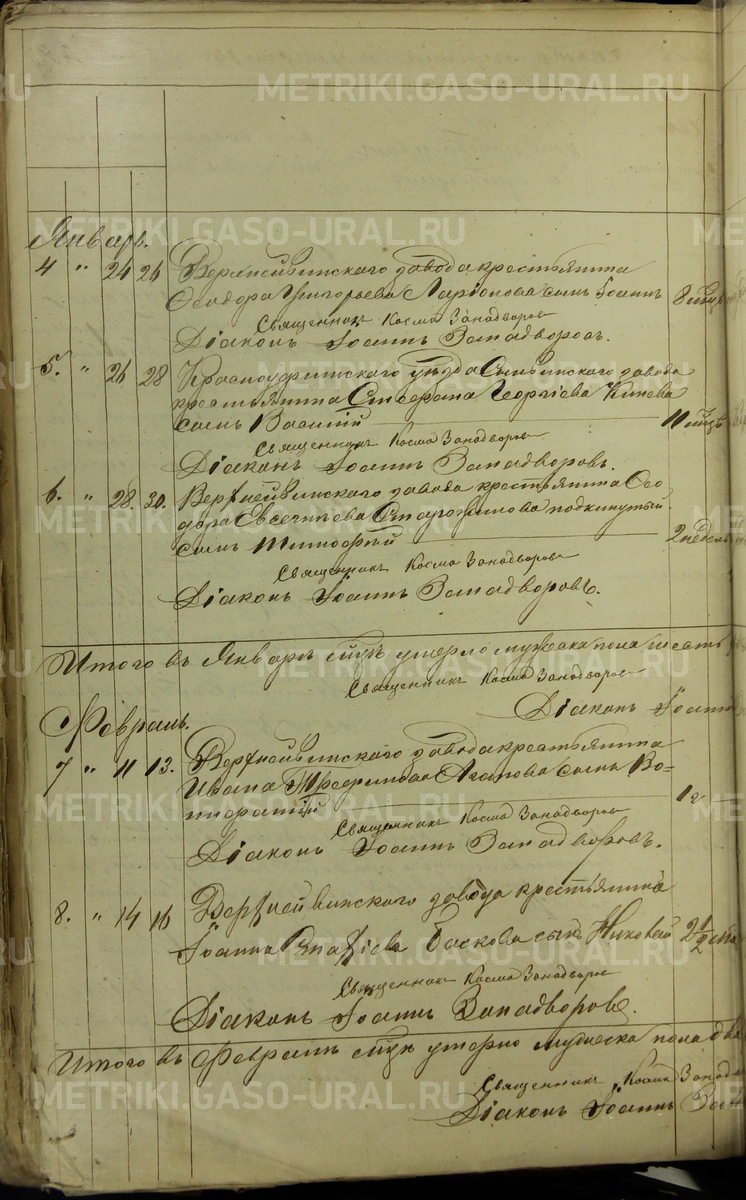 METRIKI.GASO-URAL.RU
Январь.
4 " 24 26 Верхнейвинского завода крестьянина
Феодора Григорьева Ларионова сынъ Іоаннъ 8 мцъ
Священникъ Косма Западворовъ
Діаконъ Іоаннъ Западворовъ.
5. " 26 28 Красноуфимскаго уѣзда завода
крестьянина Георгіева сынъ Василій 11 мцъ
Священникъ Косма Западворовъ
Діаконъ Іоаннъ Западворовъ.
6. " 28. 30. Верхнейвинского завода крестьянина Фео-
дора Евсечнѣева Старожилова подкинутый
сынъ Тимофей 2 недѣль
Священникъ Косма Западворовъ
Діаконъ Іоаннъ Западворовъ.
Итого въ Январѣ мцѣ умерло мужеска пола шесть
Священникъ Косма Западворовъ
Діаконъ Іоаннъ
Февраль.
7 " 11 13. Верхнейвинского завода крестьянина
Ивана Агапова сынъ
1 г
Священникъ Косма Западворовъ
Діаконъ Іоаннъ Западворовъ.
8. " 14 16 Верхнейвинского завода крестьянина
Іоанна Баскова сынъ Николай 2 1/2
Священникъ Косма Западворовъ
Діаконъ Іоаннъ Западворовъ.
Итого въ Февралѣ мцѣ умерло мужеска пола два
Священникъ Косма
Діаконъ Іоаннъ